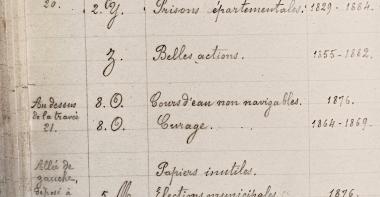 20. 2. Y. Prisons épartementales. 1829-1884.
Z. Belles actions. 1855-1882.
Au dessus 8. O. Cours d'eau non navigables. 1876.
de la travée
21. 8. O. Curage. 1864-1869.
Allée de Papiers inutiles.
gauche,
déposé à 5. M. Elections municipales. 1876